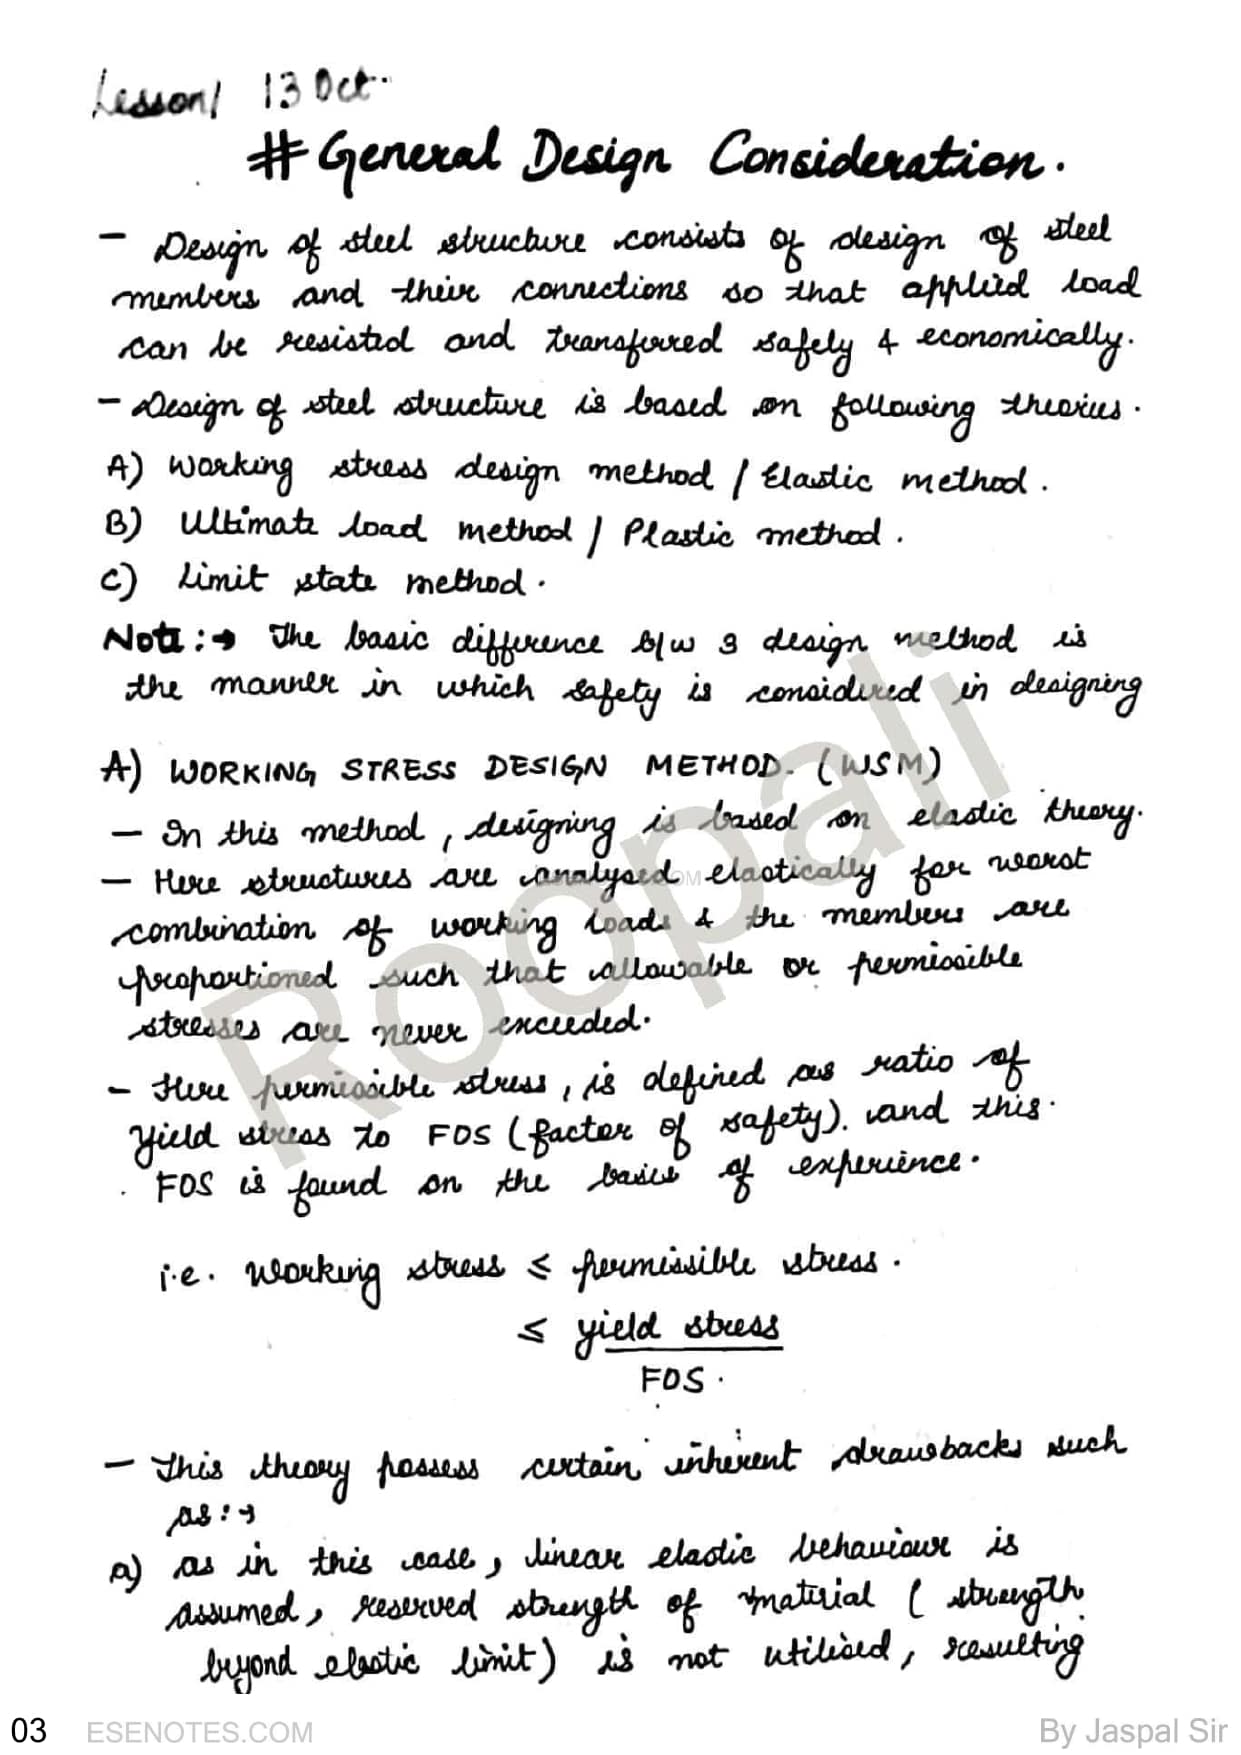 Lesson 1 13 Oct.
# General Design Consideration.
- Design of steel structure consists of design of steel
members and their connections so that applied load
can be resisted and transferred safely & economically.
- Design of steel structure is based on following theories.
A) Working stress design method / Elastic method.
B) Ultimate load method / Plastic method.
C) Limit state method.
Note:→ The basic difference b/w 3 design method is
the manner in which safety is considered in designing
A) WORKING STRESS DESIGN METHOD. (WSM)
- In this method, designing is based on elastic theory.
- Here structures are analysed elastically for worst
combination of working loads & the members are
proportioned such that allowable or permissible
stresses are never exceeded.
- Here permissible stress, is defined as ratio of
Yield stress to FOS (factor of safety). and this
FOS is found on the basis of experience.
i.e. working stress ≤ permissible stress.
≤ yield stress
FOS.
- This theory possess certain inherent drawbacks such
as:→
a) as in this case, linear elastic behaviour is
assumed, reserved strength of material ( strength
beyond elastic limit) is not utilised, resulting
Roopali
03 ESENOTES.COM By Jaspal Sir